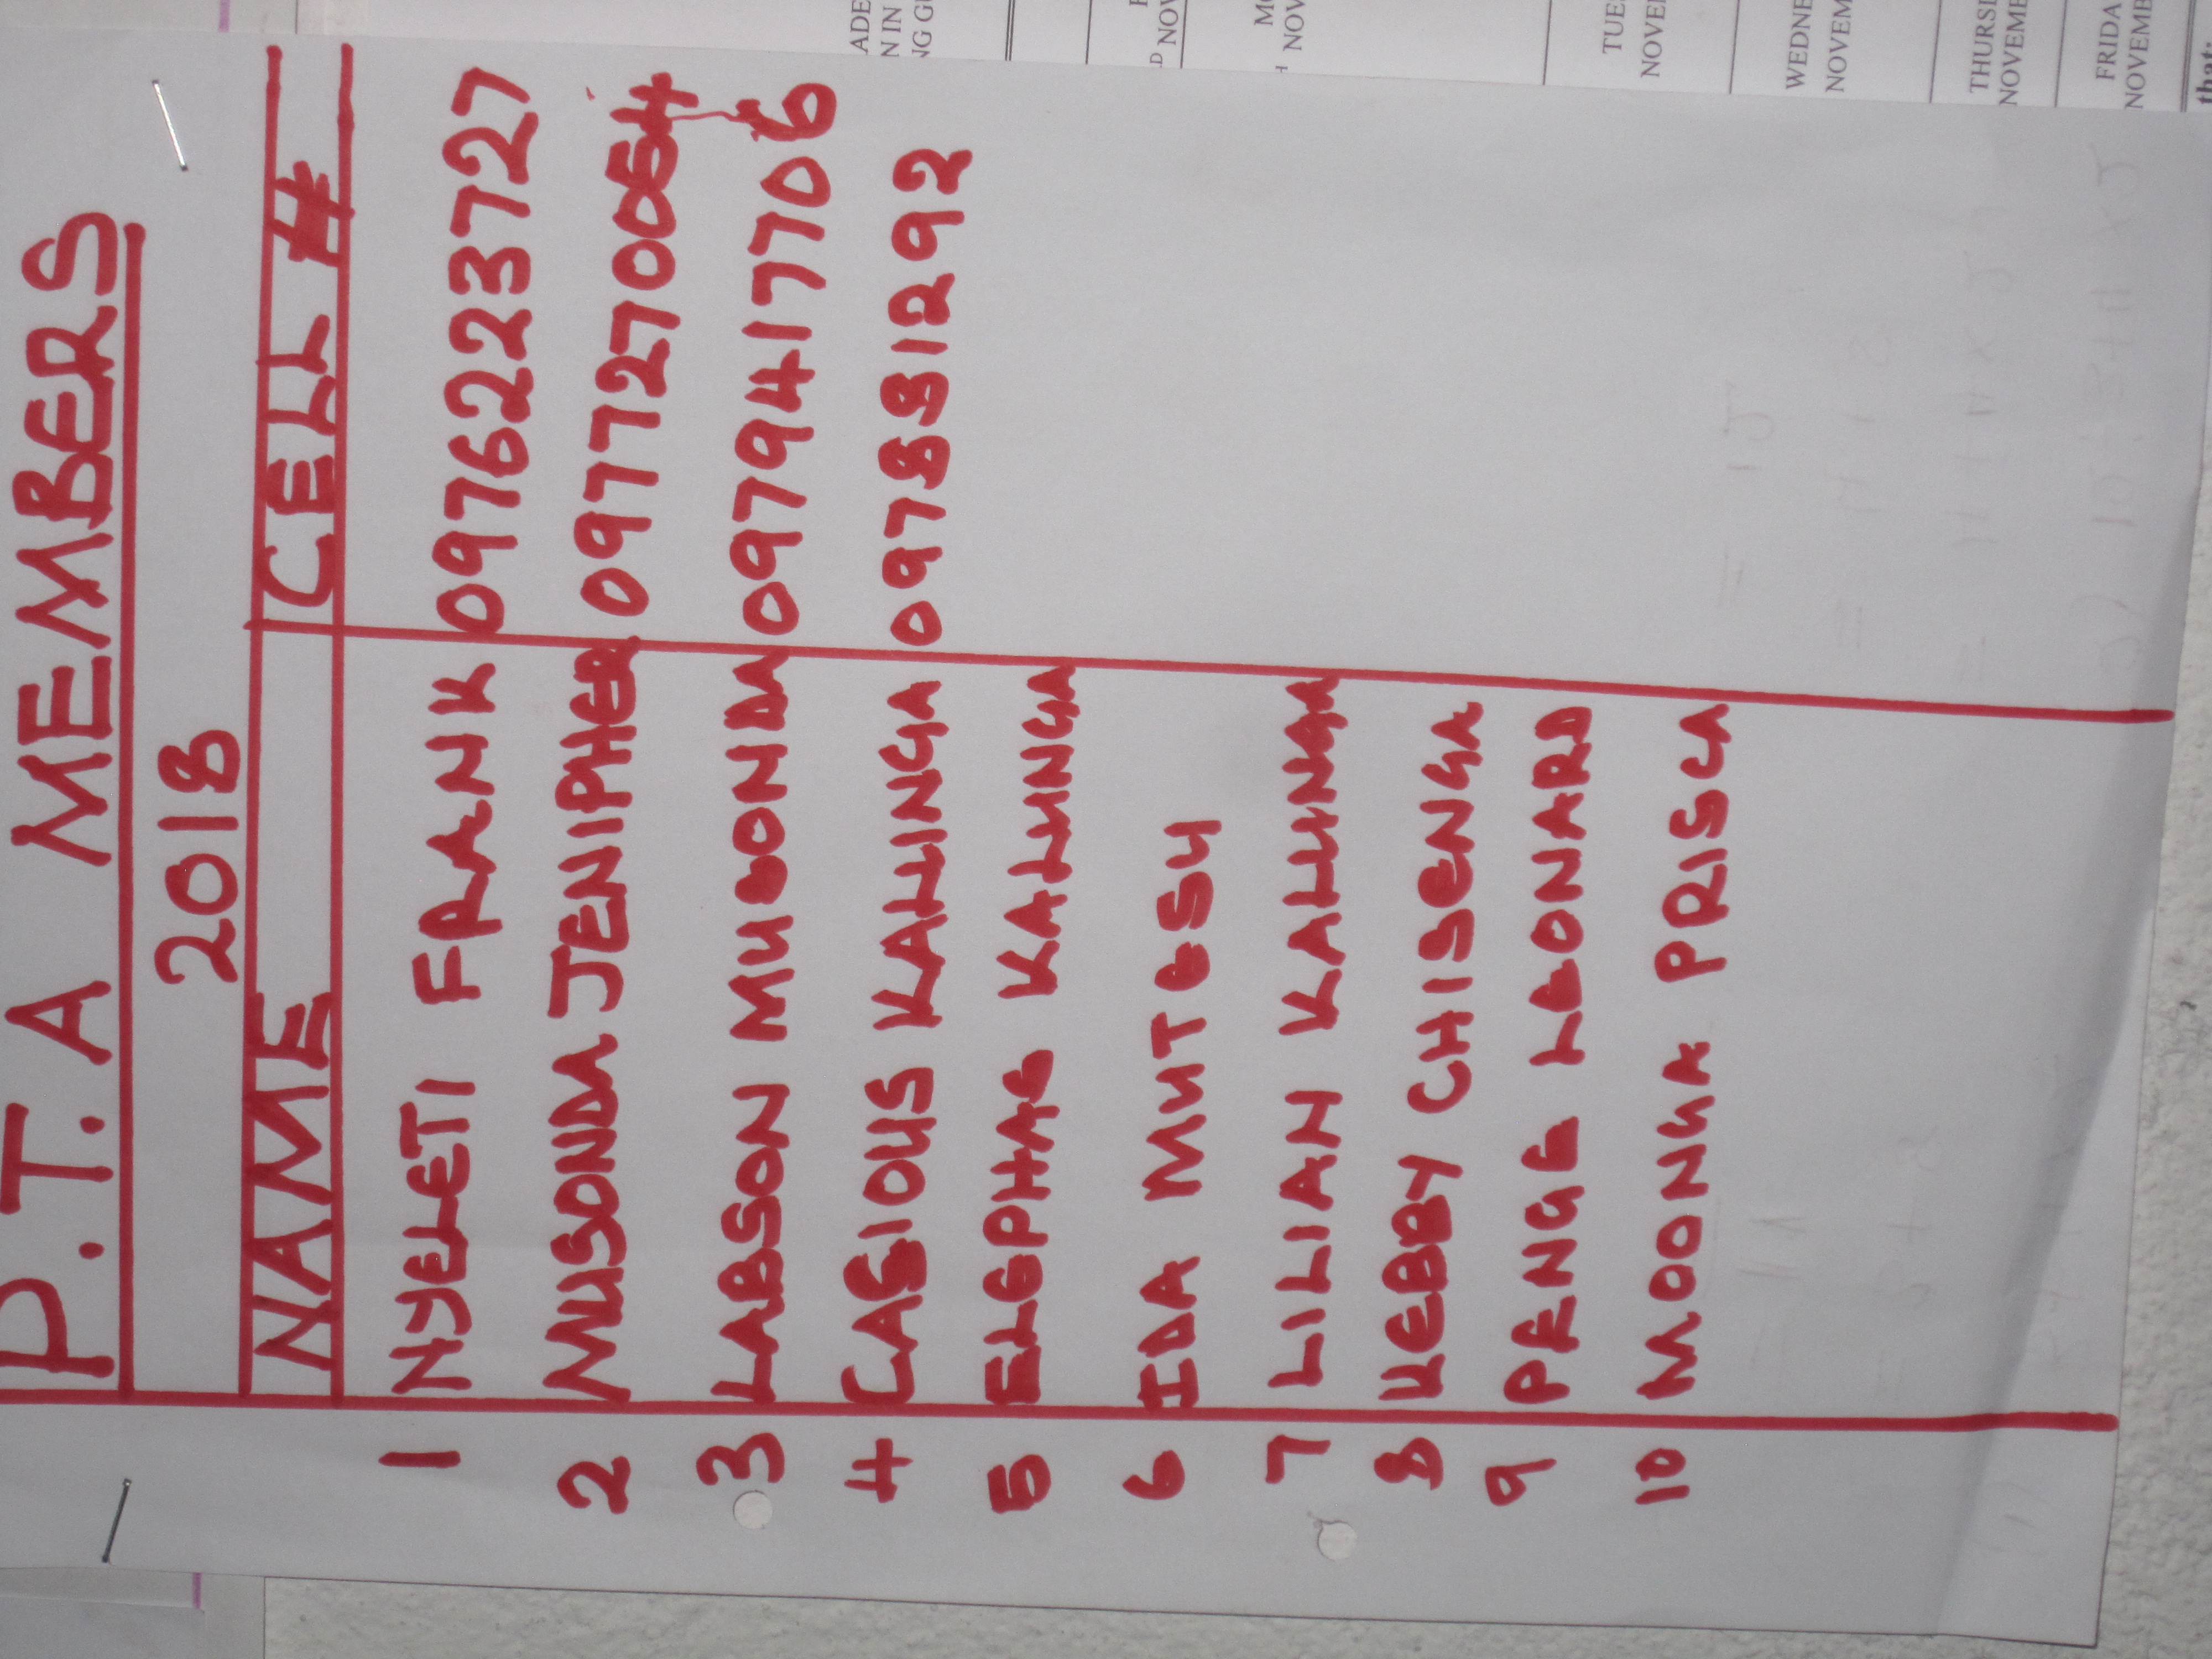 P.T.A MEMBERS
2018
NAME CELL #
1 NJELETI FRANK 0976223727
2 MUSONDA JENIPHER 0977270054
3 LABSON MUSONDA 0979417706
4 CASIOUS KALINGA 0978812 92
5 ELEPHAS KALUNGA
6 IDA MUTESU
7 LILIAN KALUNGA
8 KEBBY CHISENGA
9 PENGE LEONARD
10 MOONGA PRISCA
ADE
N IN
NG GU
D NOV
H NOV
TUE
NOVE
WEDNE
NOVEM
THURS
NOVEME
FRIDA
NOVEMB
that: